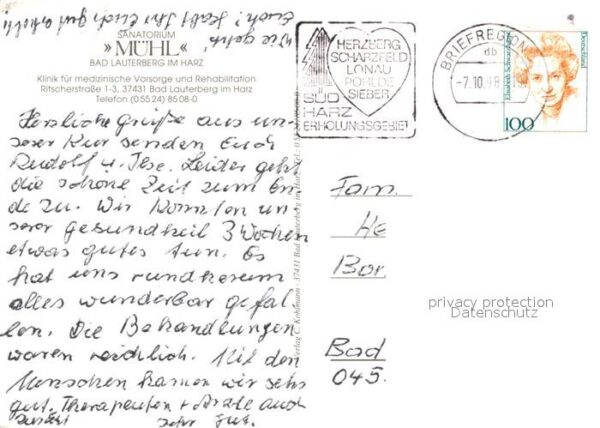 Wie geht's
Euch? Habt Ihr Euch gut erholt?
SANATORIUM
»MÜHL«
BAD LAUTERBERG IM HARZ
Klinik für medizinische Vorsorge und Rehabilitation
Ritscherstraße 1-3, 37431 Bad Lauterberg im Harz
Telefon (05524) 8508-0
Herzliche Grüße aus un-
serer Kur senden Euch
Rudolf u. Ilse. Leider geht
die schöne Zeit zum En-
de zu. Wir konnten un-
serer Gesundheit 3 Wochen
etwas gutes tun. Es
hat uns rundherum
alles wunderbar gefal-
len. Die Behandlungen
waren reichlich. Mit den
Menschen kamen wir sehr
gut. Therapeuten + Ärzte auch
sehr gut.
Verlag C. Kohlmann · 37431 Bad Lauterberg im Harz
HERZBERG
SCHARZFELD
LONAU
POHLDE
SIEBER
SÜD
HARZ
ERHOLUNGSGEBIET
BRIEFREGION
db
-7.10.98
Elisabeth Schwarz
Deutschland
100
Fam.
He
Bor.
Bad
045.
privacy protection
Datenschutz